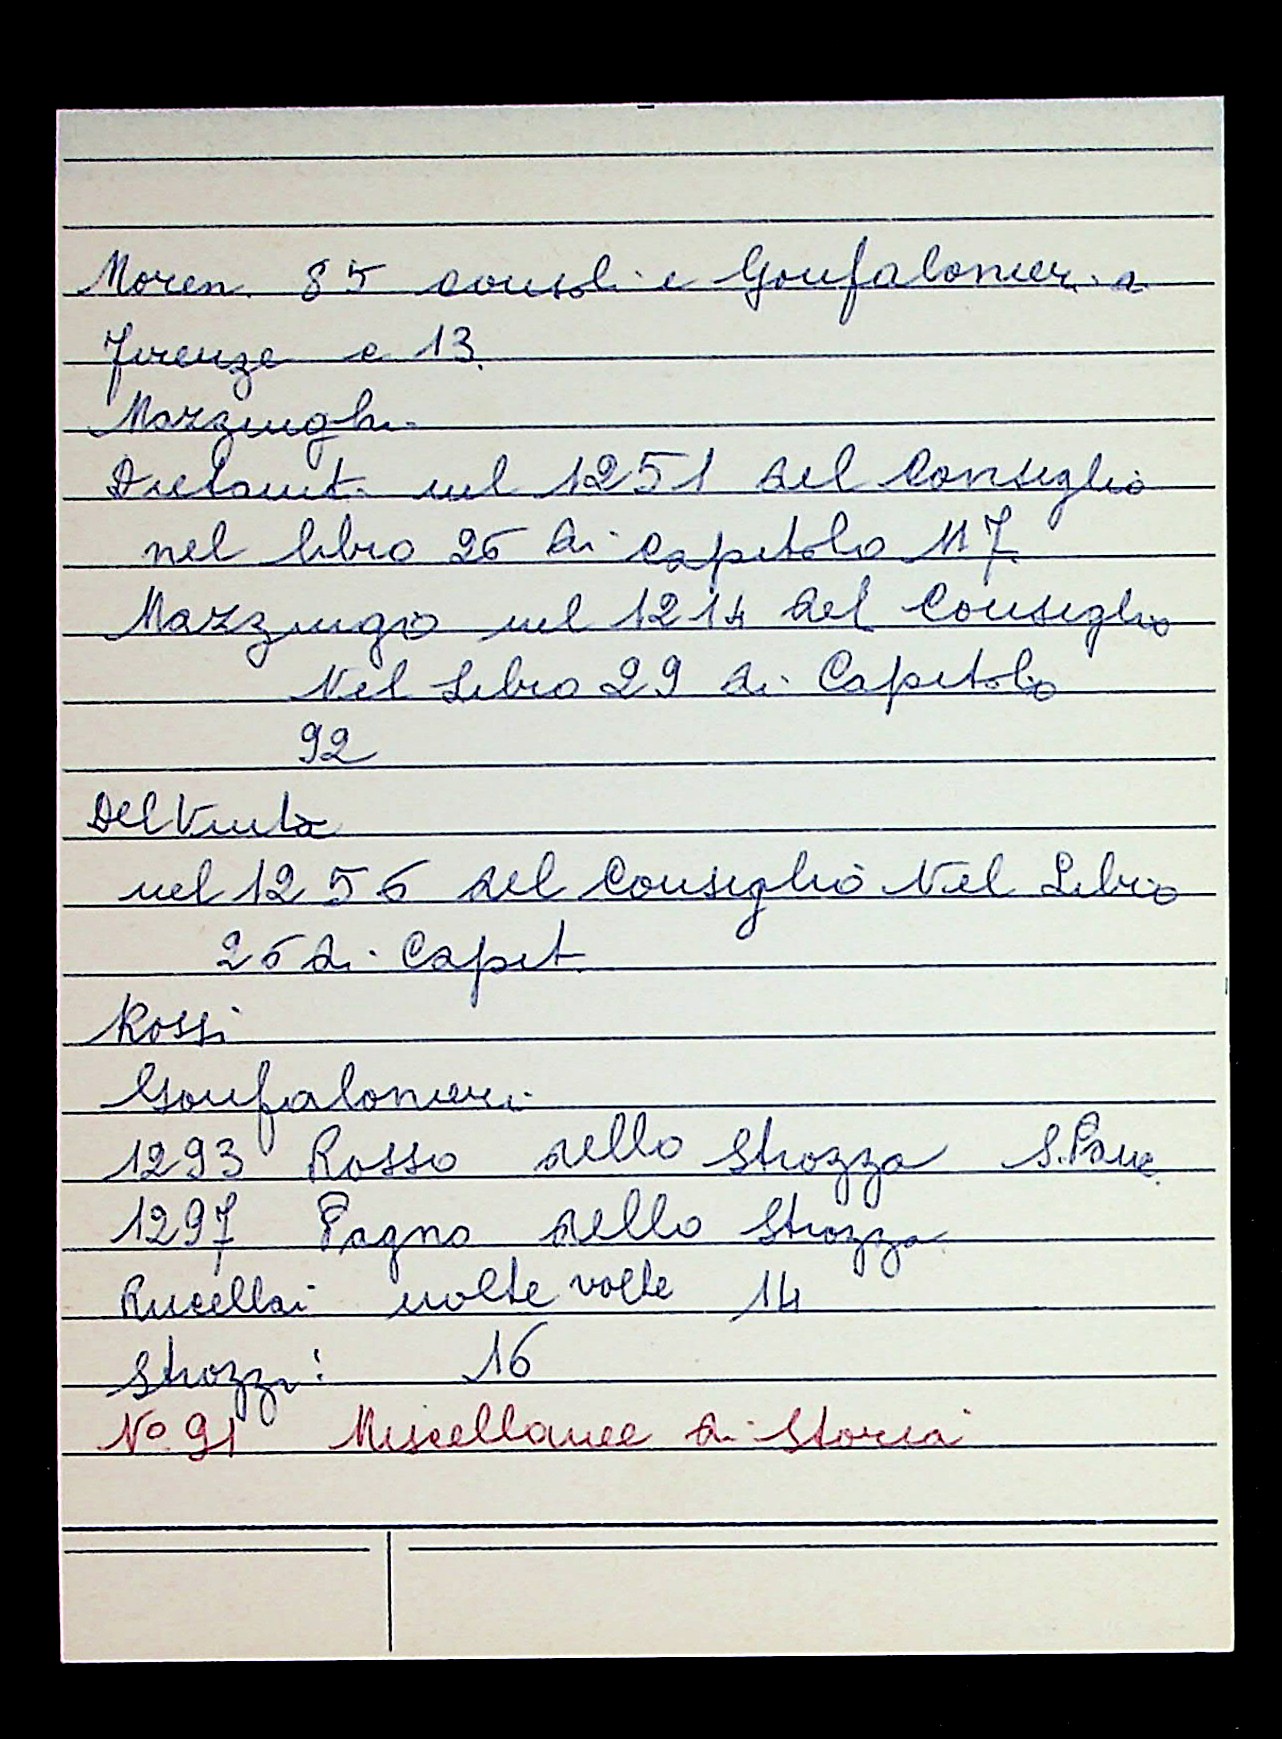 Moren. 85 consoli e Gonfalonieri a
Firenze e 13.
Mazzinghi
Dietaiuti nel 1251 del Consiglio
nel libro 26 di capitolo 117
Mazzingo nel 1214 del Consiglio
Nel Libro 29 di Capitolo
92
Del Vinta
nel 1256 del Consiglio Nel Libro
26 di Capit
Rossi
Gonfalonieri
1293 Rosso dello Strozza S. Panc.
1297 Pagno dello Strozza
Rucellai molte volte 14
Strozzi: 16
No. 91 Miscellanee di Storia